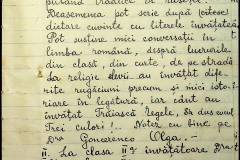 putând traduce în rusește.
Deasemenea pot serie după (citesc)
dictare cuvinte cu literele învățate.
Pot susține mici conversații în
limba română, despre lucrurile
din clasă, din curte, de pe stradă.
La religie elevii au învățat dife-
rite rugăciuni precum și mici isto-
rioare în legătură, iar cânt au
învățat Trăiască Regele, și Drd.
Trei culori!. Notez cu bine pe
Dra Goncerenco Olga.
II. La clasa II-a învățătoare Dra